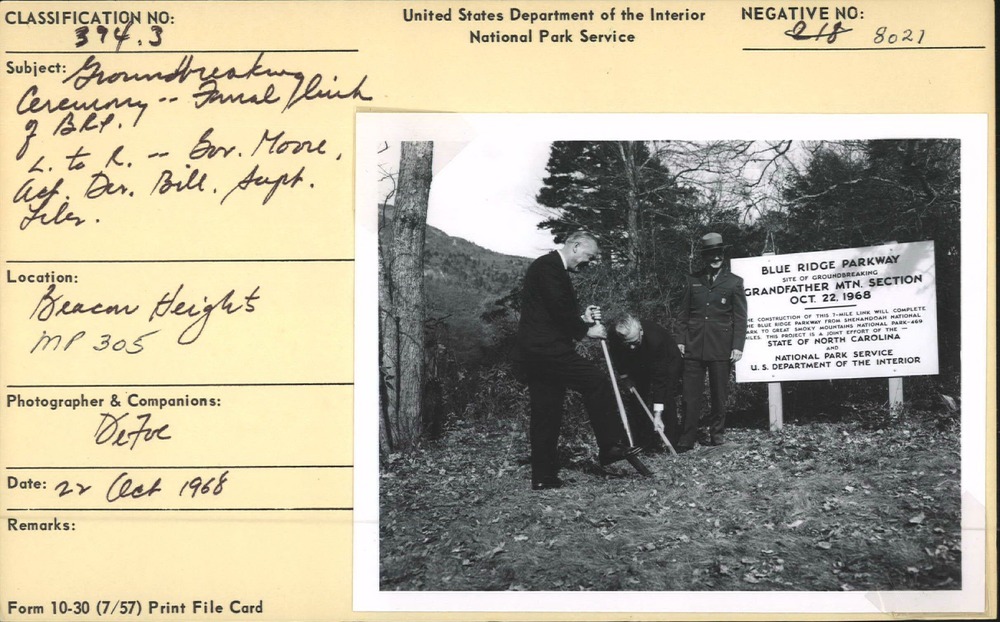 CLASSIFICATION NO:
394.3
United States Department of the Interior
National Park Service
NEGATIVE NO:
218 8021
Subject: Groundbreaking
Ceremony -- Final link
of BRP.
L. to R. -- Gov. Moore,
Act. Dir. Bill, Supt.
Liles.
Location:
Beacon Heights
MP 305
Photographer & Companions:
DeFoe
Date: 22 Oct 1968
Remarks:
Form 10-30 (7/57) Print File Card
BLUE RIDGE PARKWAY
SITE OF GROUNDBREAKING
GRANDFATHER MTN. SECTION
OCT. 22, 1968
CONSTRUCTION OF THIS 7-MILE LINK WILL COMPLETE
BLUE RIDGE PARKWAY FROM SHENANDOAH NATIONAL
TO GREAT SMOKY MOUNTAINS NATIONAL PARK-469
THIS PROJECT IS A JOINT EFFORT OF THE —
STATE OF NORTH CAROLINA
AND
NATIONAL PARK SERVICE
U.S. DEPARTMENT OF THE INTERIOR